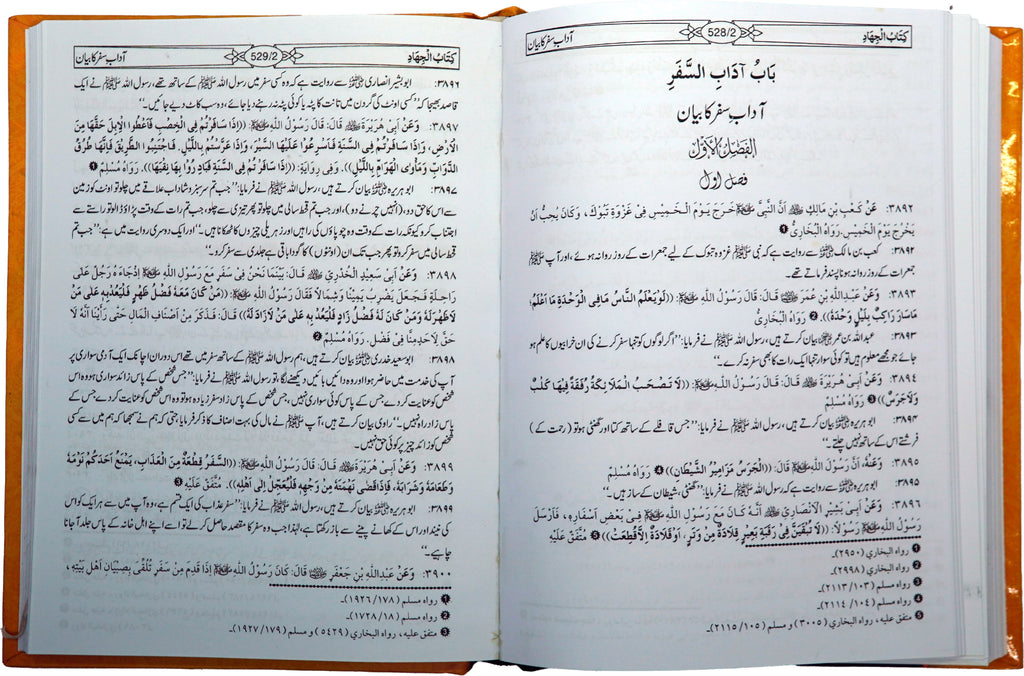 کِتَابُ الْجِهَادِ 528/2 آداب سفر کا بیان
بَابُ آدَابِ السَّفَرِ
آدابِ سفر کا بیان
الْفَصْلُ الْأَوَّلُ
فصل اول
۳۸۹۲: عَنْ كَعْبِ بْنِ مَالِكٍ ؓ أَنَّ النَّبِيَّ ﷺ خَرَجَ يَوْمَ الْخَمِيْسِ فِيْ غَزْوَةِ تَبُوْكَ، وَكَانَ يُحِبُّ أَنْ
يَخْرُجَ يَوْمَ الْخَمِيْسِ. رَوَاهُ الْبُخَارِيُّ ❶
۳۸۹۲: کعب بن مالک ؓ سے روایت ہے کہ نبی ﷺ غزوہ تبوک کے لیے جمعرات کے روز روانہ ہوئے، اور آپ ﷺ
جمعرات کے روز روانہ ہونا پسند فرماتے تھے۔
۳۸۹۳: وَعَنْ عَبْدِاللَّهِ بْنِ عُمَرَ ؓ قَالَ: قَالَ رَسُوْلُ اللَّهِ ﷺ: ((لَوْ يَعْلَمُ النَّاسُ مَا فِي الْوَحْدَةِ مَا أَعْلَمُ؛
مَا سَارَ رَاكِبٌ بِلَيْلٍ وَحْدَهُ)). ❷ رَوَاهُ الْبُخَارِيُّ
۳۸۹۳: عبداللہ بن عمر ؓ بیان کرتے ہیں، رسول اللہ ﷺ نے فرمایا: ’’اگر لوگوں کو تنہا سفر کرنے کی ان خرابیوں کا علم ہو
جائے جو مجھے معلوم ہیں تو کوئی سوار تنہا ایک رات کا بھی سفر نہ کرے۔‘‘
۳۸۹۴: وَعَنْ أَبِيْ هُرَيْرَةَ ؓ قَالَ: قَالَ رَسُوْلُ اللَّهِ ﷺ: ((لَا تَصْحَبُ الْمَلَائِكَةُ رُفْقَةً فِيْهَا كَلْبٌ
وَلَا جَرَسٌ)) ❸ رَوَاهُ مُسْلِمٌ
۳۸۹۴: ابو ہریرہ ؓ بیان کرتے ہیں، رسول اللہ ﷺ نے فرمایا: ’’جس قافلے کے ساتھ کتا اور گھنٹی ہو تو (رحمت کے)
فرشتے اس کے ساتھ نہیں چلتے۔‘‘
۳۸۹۵: وَعَنْهُ، أَنَّ رَسُوْلَ اللَّهِ ﷺ قَالَ: ((الْجَرَسُ مَزَامِيْرُ الشَّيْطَانِ)) ❹ رَوَاهُ مُسْلِمٌ
۳۸۹۵: ابو ہریرہ ؓ سے روایت ہے کہ رسول اللہ ﷺ نے فرمایا: ’’گھنٹی، شیطان کے ساز ہیں۔‘‘
۳۸۹۶: وَعَنْ أَبِيْ بَشِيْرٍ الْأَنْصَارِيِّ ؓ أَنَّهُ كَانَ مَعَ رَسُوْلِ اللَّهِ ﷺ فِيْ بَعْضِ أَسْفَارِهِ، فَأَرْسَلَ
رَسُوْلُ اللَّهِ ﷺ رَسُوْلًا: ((لَا تُبْقَيَنَّ فِيْ رَقَبَةِ بَعِيْرٍ قِلَادَةٌ مِنْ وَتَرٍ، أَوْ قِلَادَةٌ إِلَّا قُطِعَتْ)) ❺ مُتَّفَقٌ عَلَيْهِ
❶ رواه البخاري (۲۹۵۰)۔
❷ رواه البخاري (۲۹۹۸)۔
❸ رواه مسلم (۱۰۳/۲۱۱۳)۔
❹ رواه مسلم (۱۰۴/۲۱۱۴)۔
❺ متفق عليه، رواه البخاري (۳۰۰۵) و مسلم (۱۰۵/۲۱۱۵)۔
کِتَابُ الْجِهَادِ 529/2 آداب سفر کا بیان
۳۸۹۶: ابو بشیر انصاری ؓ سے روایت ہے کہ وہ کسی سفر میں رسول اللہ ﷺ کے ساتھ تھے، رسول اللہ ﷺ نے ایک
قاصد بھیجا کہ ’’کسی اونٹ کی گردن میں تانت کا پٹہ یا کوئی پٹہ نہ رہنے دیا جائے، وہ سب کاٹ دیے جائیں۔‘‘
۳۸۹۷: وَعَنْ أَبِيْ هُرَيْرَةَ ؓ قَالَ: قَالَ رَسُوْلُ اللَّهِ ﷺ: ((إِذَا سَافَرْتُمْ فِي الْخِصْبِ فَأَعْطُوا الْإِبِلَ حَقَّهَا مِنَ
الْأَرْضِ، وَإِذَا سَافَرْتُمْ فِي السَّنَةِ فَأَسْرِعُوْا عَلَيْهَا السَّيْرَ، وَإِذَا عَرَّسْتُمْ بِاللَّيْلِ، فَاجْتَنِبُوا الطَّرِيْقَ فَإِنَّهَا طُرُقُ
الدَّوَابِّ وَمَأْوَى الْهَوَامِّ بِاللَّيْلِ)). وَفِيْ رِوَايَةٍ: ((إِذَا سَافَرْتُمْ فِي السَّنَةِ فَبَادِرُوْا بِهَا نِقْيَهَا)). رَوَاهُ مُسْلِمٌ ❶
۳۸۹۷: ابو ہریرہ ؓ بیان کرتے ہیں، رسول اللہ ﷺ نے فرمایا: ’’جب تم سرسبز و شاداب علاقے میں چلو تو اونٹ کو زمین
سے اس کا حق دو، (انہیں چرنے دو)، اور جب تم قحط سالی میں چلو تو پھر تیزی سے چلو، جب تم رات کے وقت پڑاؤ ڈالو تو راستے سے
اجتناب کرو کیونکہ رات کے وقت وہ چوپاؤں کی راہیں اور زہریلی چیزوں کا ٹھکانا ہیں۔‘‘ اور ایک دوسری روایت میں ہے: ’’جب تم
قحط سالی میں سفر کرو تو پھر جب تک ان (اونٹوں) کا گودا باقی ہے جلدی سے سفر کرو۔‘‘
۳۸۹۸: وَعَنْ أَبِيْ سَعِيْدٍ الْخُدْرِيِّ ؓ قَالَ: بَيْنَمَا نَحْنُ فِيْ سَفَرٍ مَعَ رَسُوْلِ اللَّهِ ﷺ إِذْ جَاءَهُ رَجُلٌ عَلَى
رَاحِلَةٍ فَجَعَلَ يَضْرِبُ يَمِيْنًا وَشِمَالًا فَقَالَ رَسُوْلُ اللَّهِ ﷺ: ((مَنْ كَانَ مَعَهُ فَضْلُ ظَهْرٍ فَلْيَعُدْ بِهِ عَلَى مَنْ
لَا ظَهْرَ لَهُ وَمَنْ كَانَ لَهُ فَضْلُ زَادٍ فَلْيَعُدْ بِهِ عَلَى مَنْ لَا زَادَ لَهُ)) قَالَ: فَذَكَرَ مِنْ أَصْنَافِ الْمَالِ حَتَّى رَأَيْنَا أَنَّهُ لَا
حَقَّ لِأَحَدٍ مِنَّا فِيْ فَضْلٍ. رَوَاهُ مُسْلِمٌ ❷
۳۸۹۸: ابو سعید خدری ؓ بیان کرتے ہیں، ہم رسول اللہ ﷺ کے ساتھ سفر میں تھے اس دوران اچانک ایک آدمی سواری پر
آپ کی خدمت میں حاضر ہوا اور وہ دائیں بائیں دیکھنے لگا، تو رسول اللہ ﷺ نے فرمایا: ’’جس شخص کے پاس زائد سواری ہو وہ اس
شخص کو عنایت کر دے جس کے پاس کوئی سواری نہیں، جس شخص کے پاس زاد سفر زیادہ ہو تو وہ اس شخص کو عنایت کر دے جس کے
پاس زاد راہ نہیں۔‘‘ راوی بیان کرتے ہیں، آپ ﷺ نے مال کی بہت اصناف کا ذکر فرمایا حتی کہ ہم نے سمجھا کہ ہم میں سے کسی
شخص کو زائد چیز پر کوئی حق نہیں۔
۳۸۹۹: وَعَنْ أَبِيْ هُرَيْرَةَ ؓ قَالَ: قَالَ رَسُوْلُ اللَّهِ ﷺ: ((السَّفَرُ قِطْعَةٌ مِنَ الْعَذَابِ، يَمْنَعُ أَحَدَكُمْ نَوْمَهُ
وَطَعَامَهُ وَشَرَابَهُ، فَإِذَا قَضَى نَهْمَتَهُ مِنْ وَجْهِهِ فَلْيُعَجِّلْ إِلَى أَهْلِهِ)). مُتَّفَقٌ عَلَيْهِ ❸
۳۸۹۹: ابو ہریرہ ؓ بیان کرتے ہیں، رسول اللہ ﷺ نے فرمایا: ’’سفر عذاب کی ایک قسم ہے، وہ آپ میں سے ہر ایک کو اس
کی نیند اور اس کے کھانے پینے سے باز رکھتا ہے، لہٰذا جب وہ سفر کا مقصد حاصل کر لے تو اسے اپنے اہل خانہ کے پاس جلد آ جانا
چاہیے۔‘‘
۳۹۰۰: وَعَنْ عَبْدِاللَّهِ بْنِ جَعْفَرٍ ؓ قَالَ: كَانَ رَسُوْلُ اللَّهِ ﷺ إِذَا قَدِمَ مِنْ سَفَرٍ تُلُقِّيَ بِصِبْيَانِ أَهْلِ بَيْتِهِ،
❶ رواه مسلم (۱۷۸/۱۹۲۶)۔
❷ رواه مسلم (۱۸/۱۷۲۸)۔
❸ متفق عليه، رواه البخاري (۵۴۲۹) و مسلم (۱۷۹/۱۹۲۷)۔